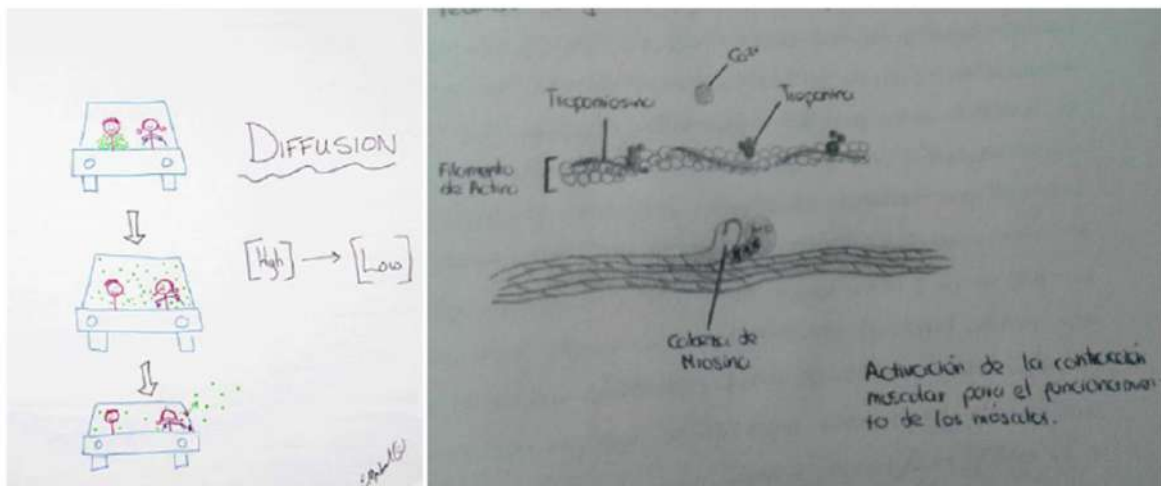 DIFFUSION
[High] → [Low]
Ca²⁺
Tropomiosina
Troponina
Filamento
de Actina
Cabeza de
Miosina
Activación de la contracción
muscular para el funcionamien
to de los músculos.